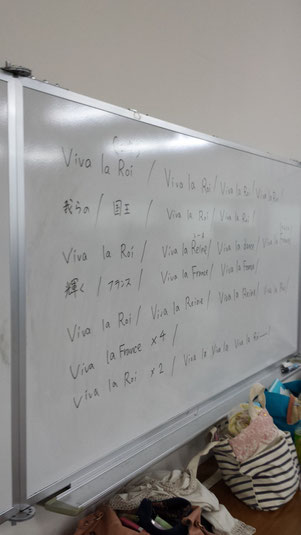 Viva la Roi / Viva la Roi / Viva la Roi / Viva la Roi /
我らの / 国王 / Viva la Roi / Viva la Roi /
Viva la Roi / Viva la Reine / Viva la Reine / Viva la France
輝く / フランス / Viva la France / Viva la France /
Viva la Roi / Viva la Reine / Viva la Reine / Viva la Roi /
Viva la France ×4 /
Viva la Roi ×2 / Viva la Viva la Viva la Roi